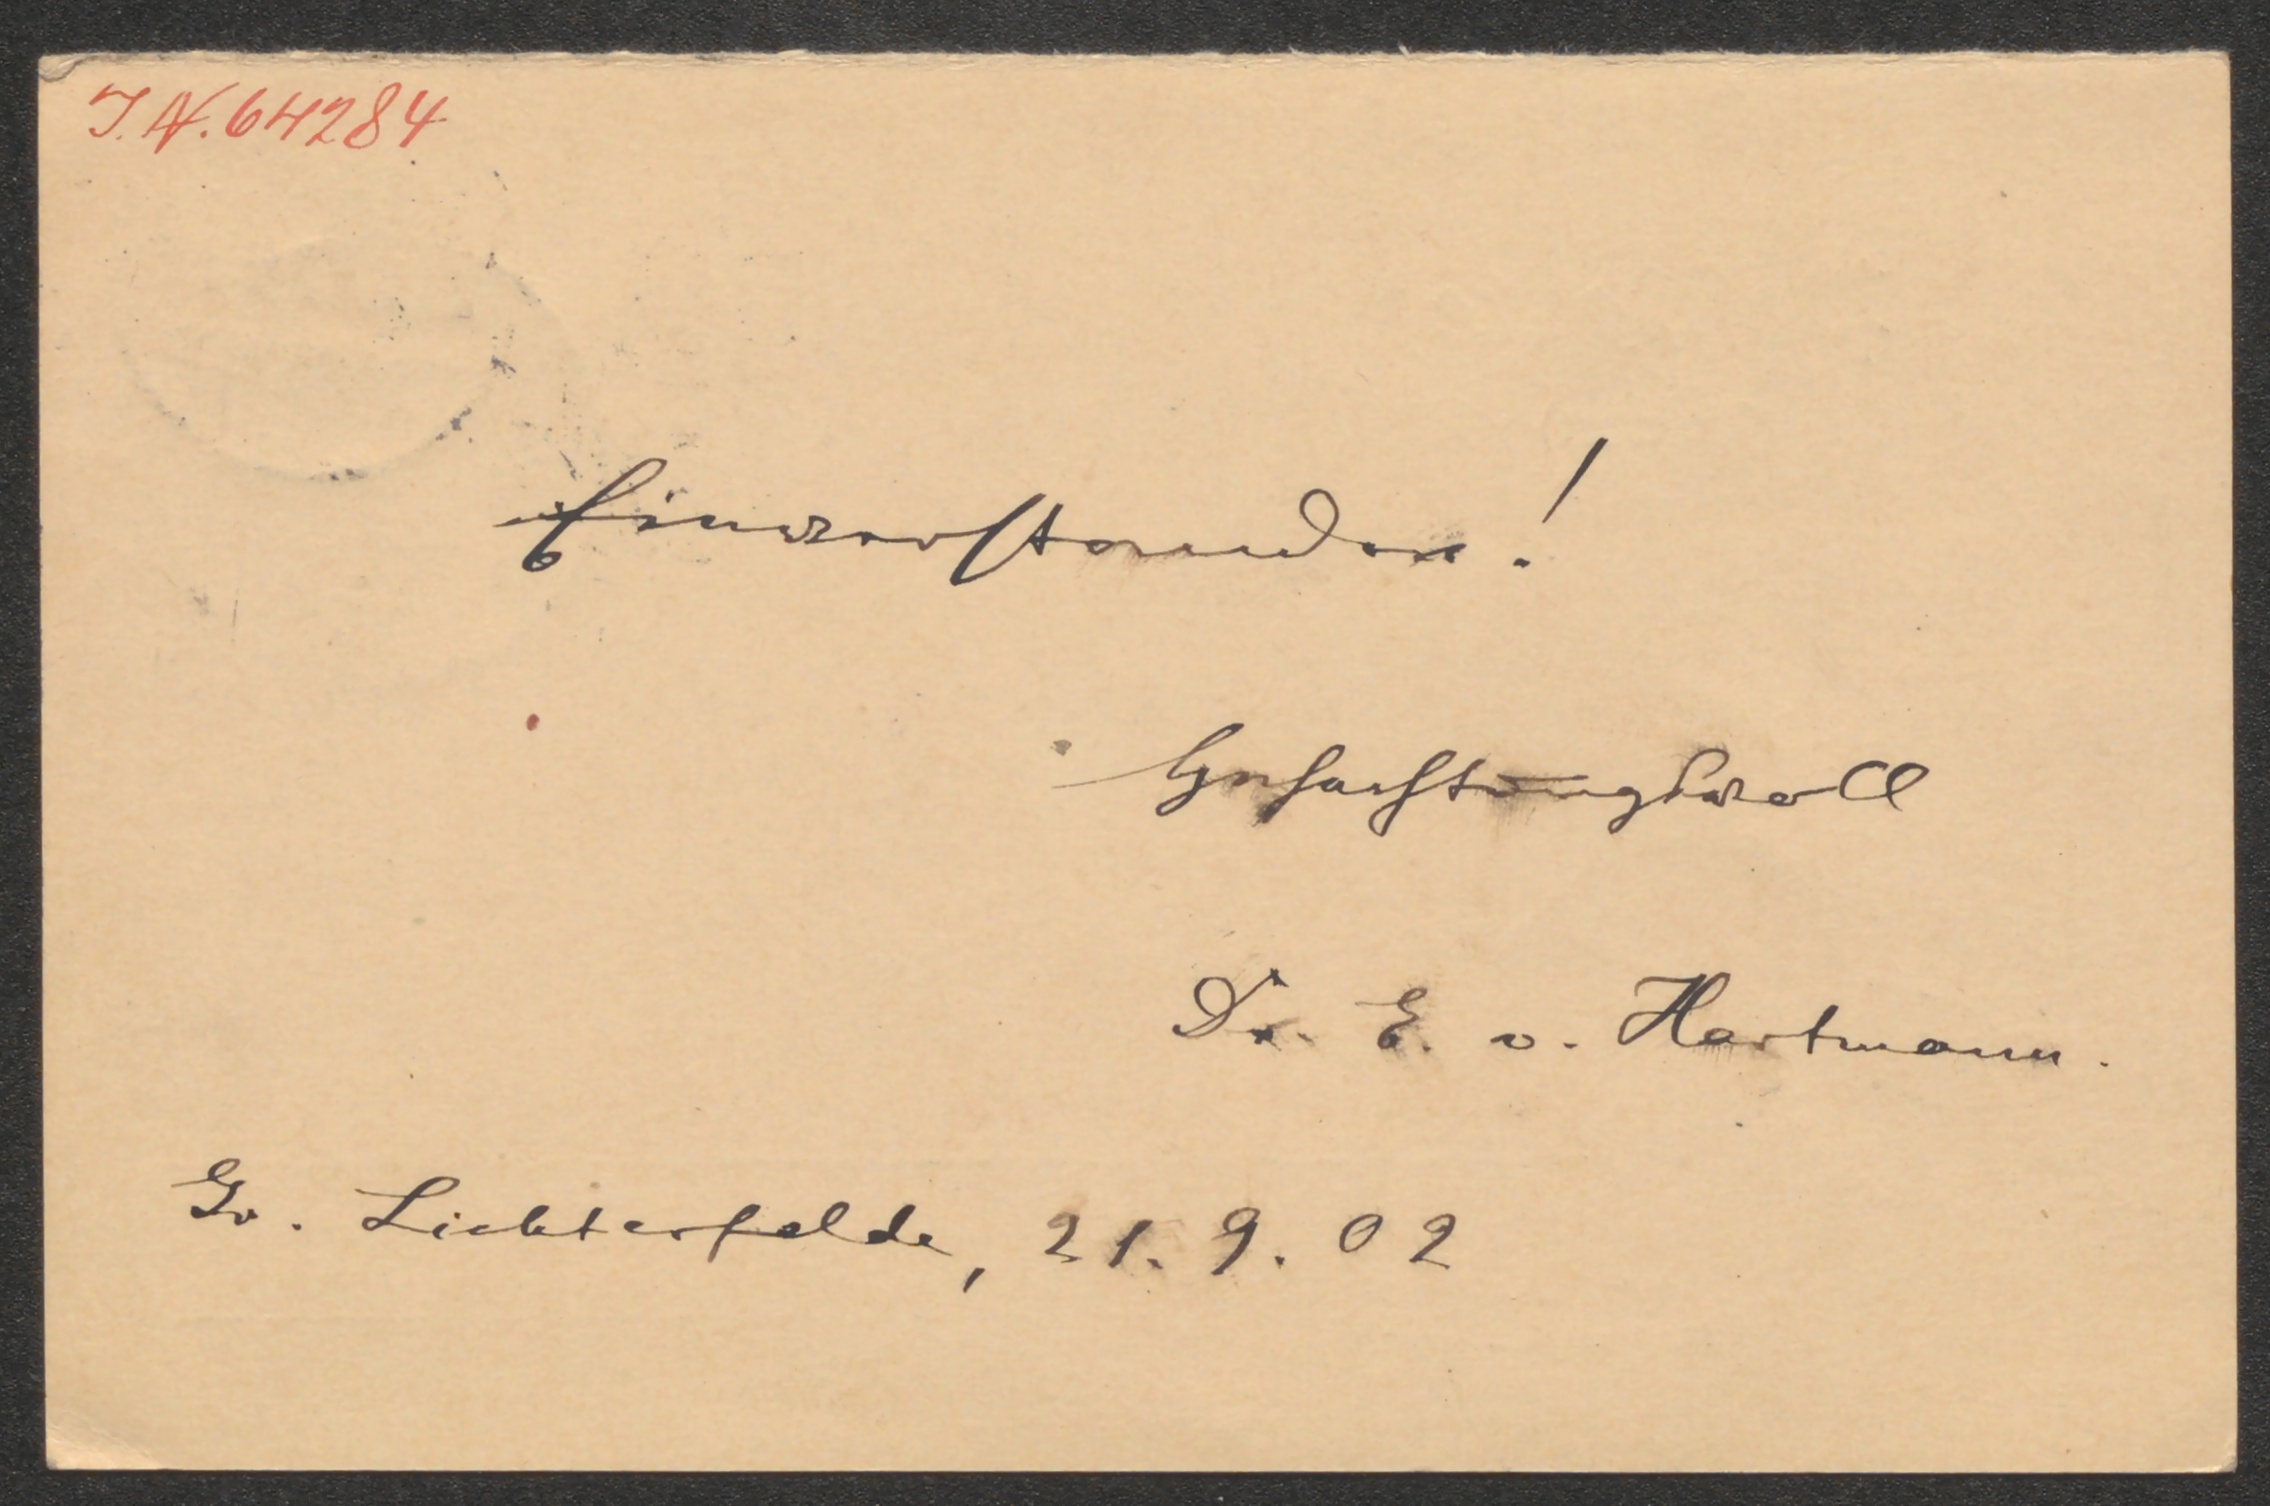 I.N. 64284
Einverstanden!
Hochachtungsvoll
Dr. E. v. Hartmann.
Gr. Lichterfelde, 21. 9. 02